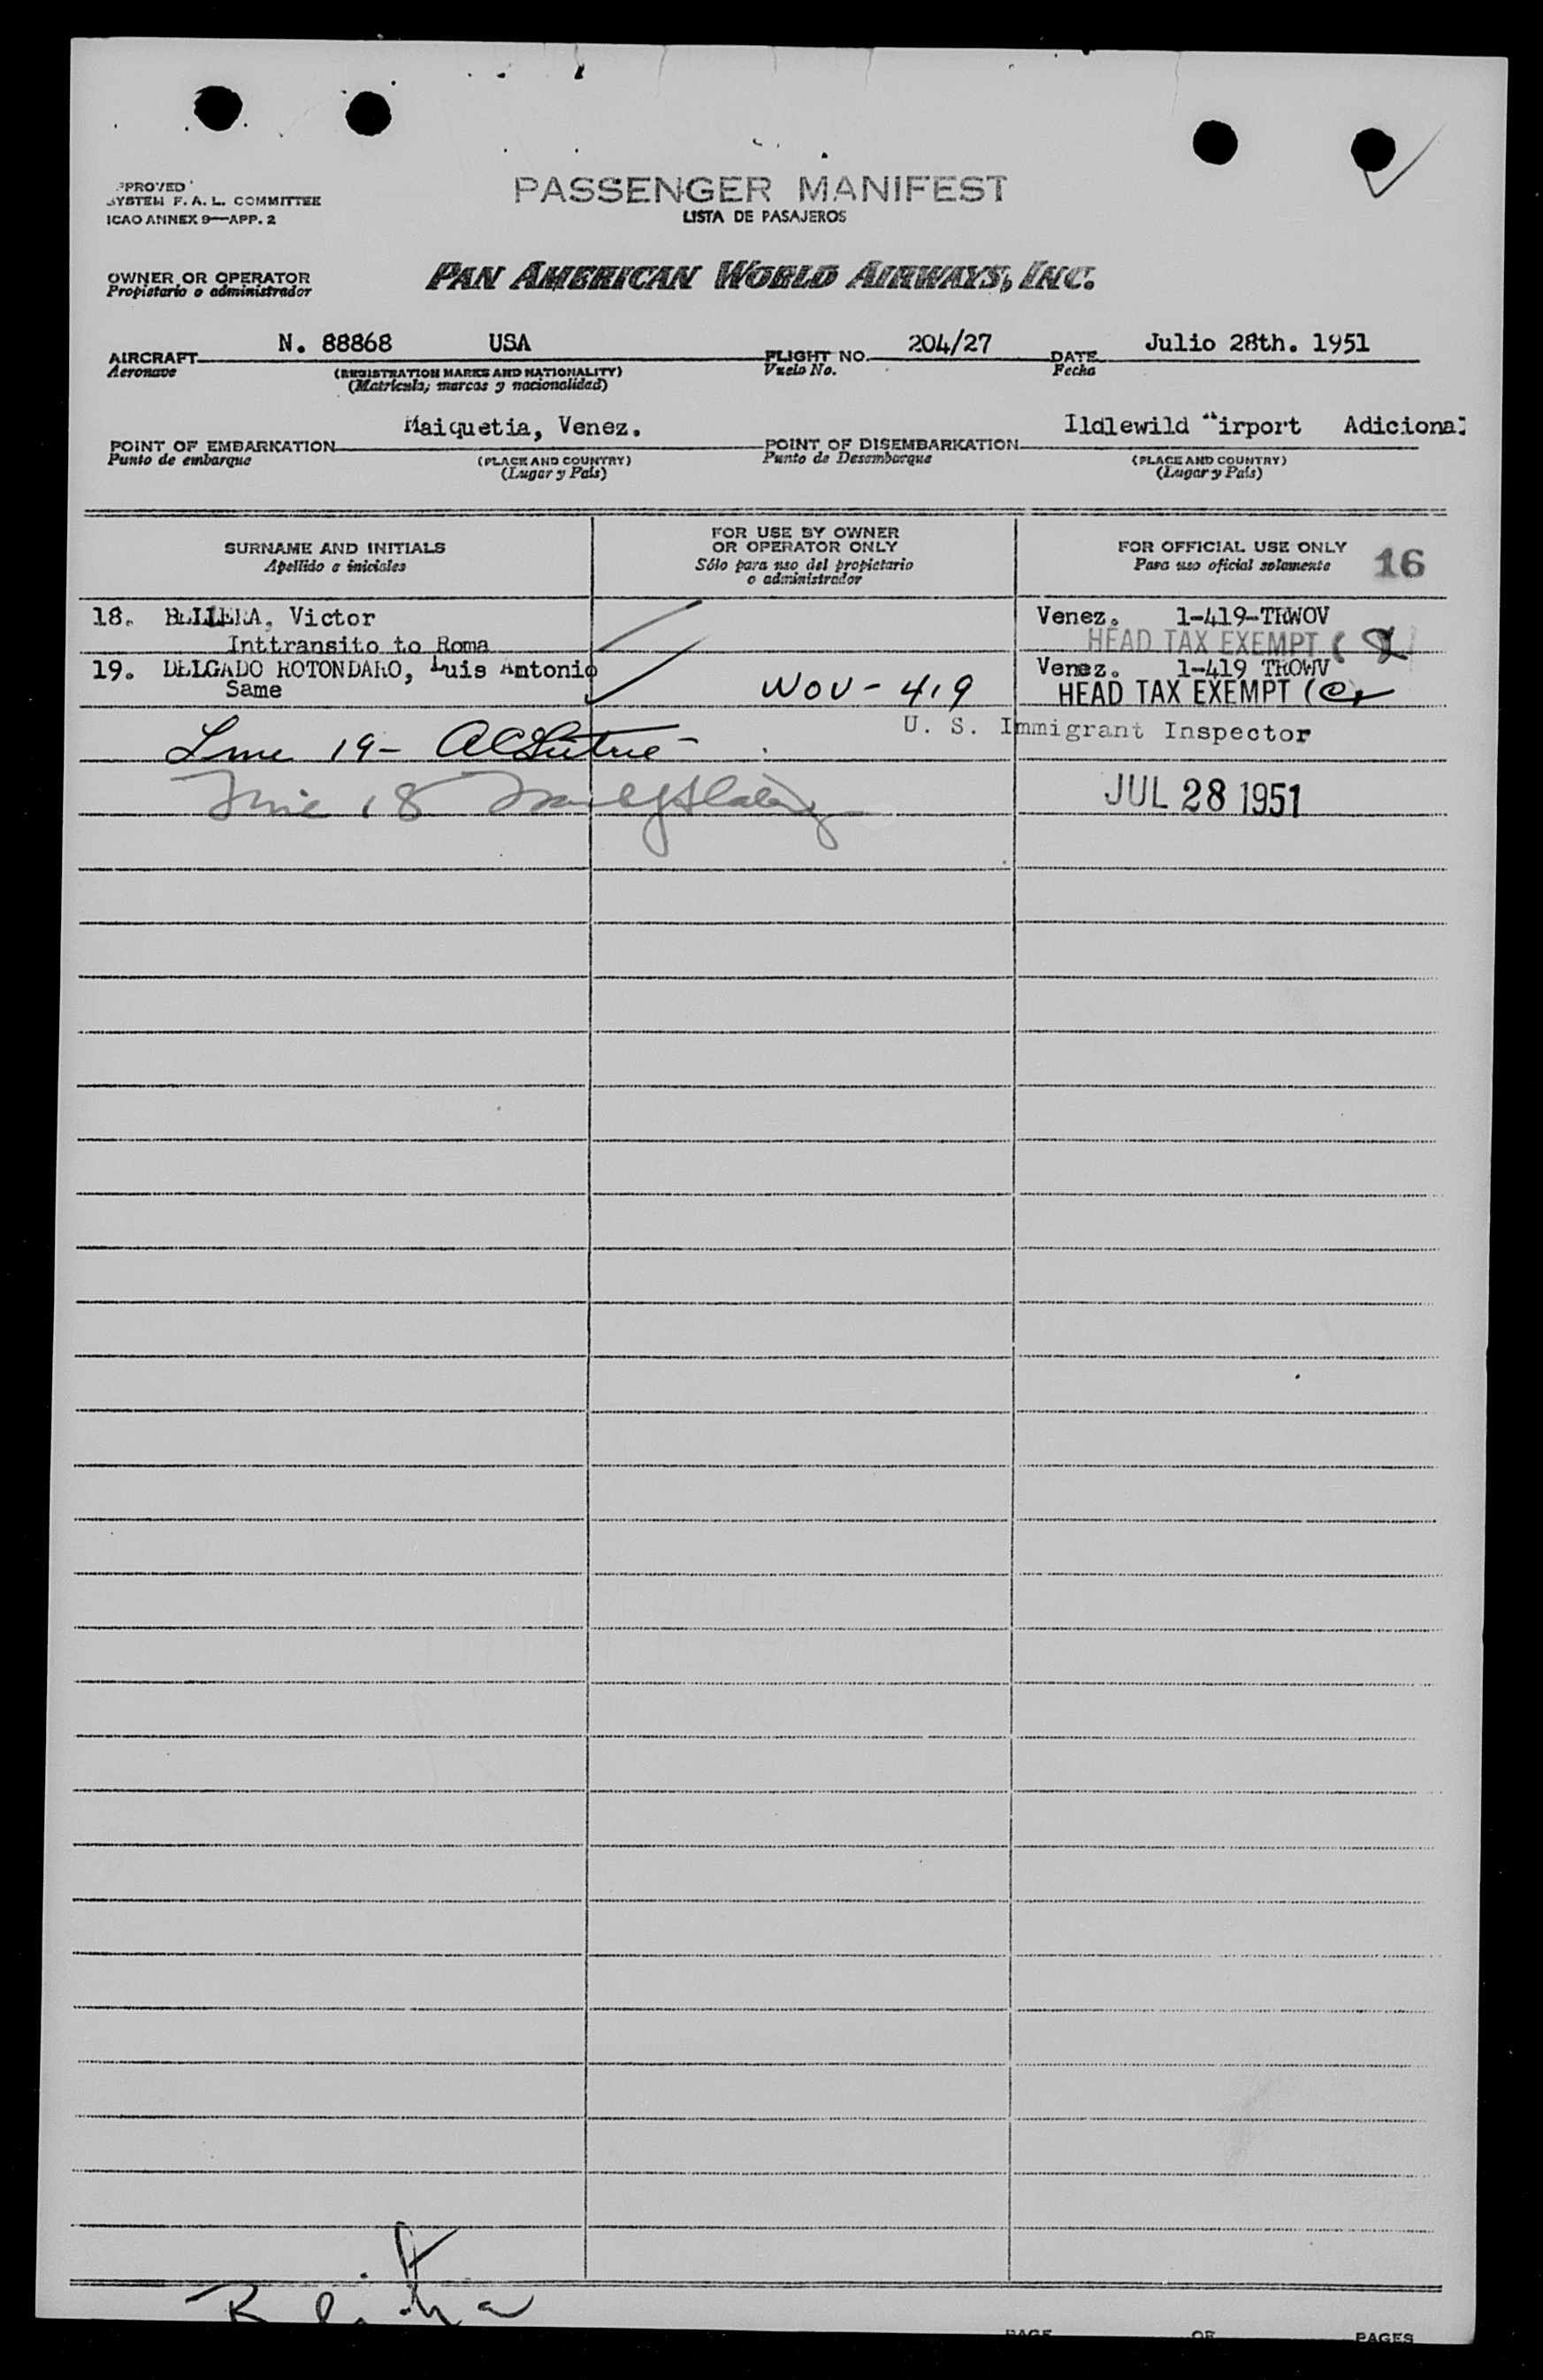 PROVED
SYSTEM F. A. L. COMMITTEE
ICAO ANNEX 9—APP. 2
PASSENGER MANIFEST
LISTA DE PASAJEROS
OWNER OR OPERATOR
Propietario o administrador
PAN AMERICAN WORLD AIRWAYS, INC.
AIRCRAFT N. 88868 USA FLIGHT NO. 204/27 DATE Julio 28th. 1951
Aeronave (REGISTRATION MARKS AND NATIONALITY) Vuelo No. Fecha
(Matrícula; marcas y nacionalidad)
POINT OF EMBARKATION Maiquetia, Venez. POINT OF DISEMBARKATION Ildlewild "irport Adiciona
Punto de embarque (PLACE AND COUNTRY) Punto de Desembarque (PLACE AND COUNTRY)
(Lugar y País) (Lugar y País)
SURNAME AND INITIALS
Apellido e iniciales
FOR USE BY OWNER
OR OPERATOR ONLY
Sólo para uso del propietario
o administrador
FOR OFFICIAL USE ONLY
Para uso oficial solamente
16
18. Victor Venez. 1-419-TRWOV
Inttransito to Roma HEAD TAX EXEMPT
19. DELGADO ROTONDARO, Luis Antonio Venez. 1-419 TROWV
Same WOV - 419 HEAD TAX EXEMPT
U. S. Immigrant Inspector
Line 19-
Line 18
JUL 28 1951
PAGE OF PAGES